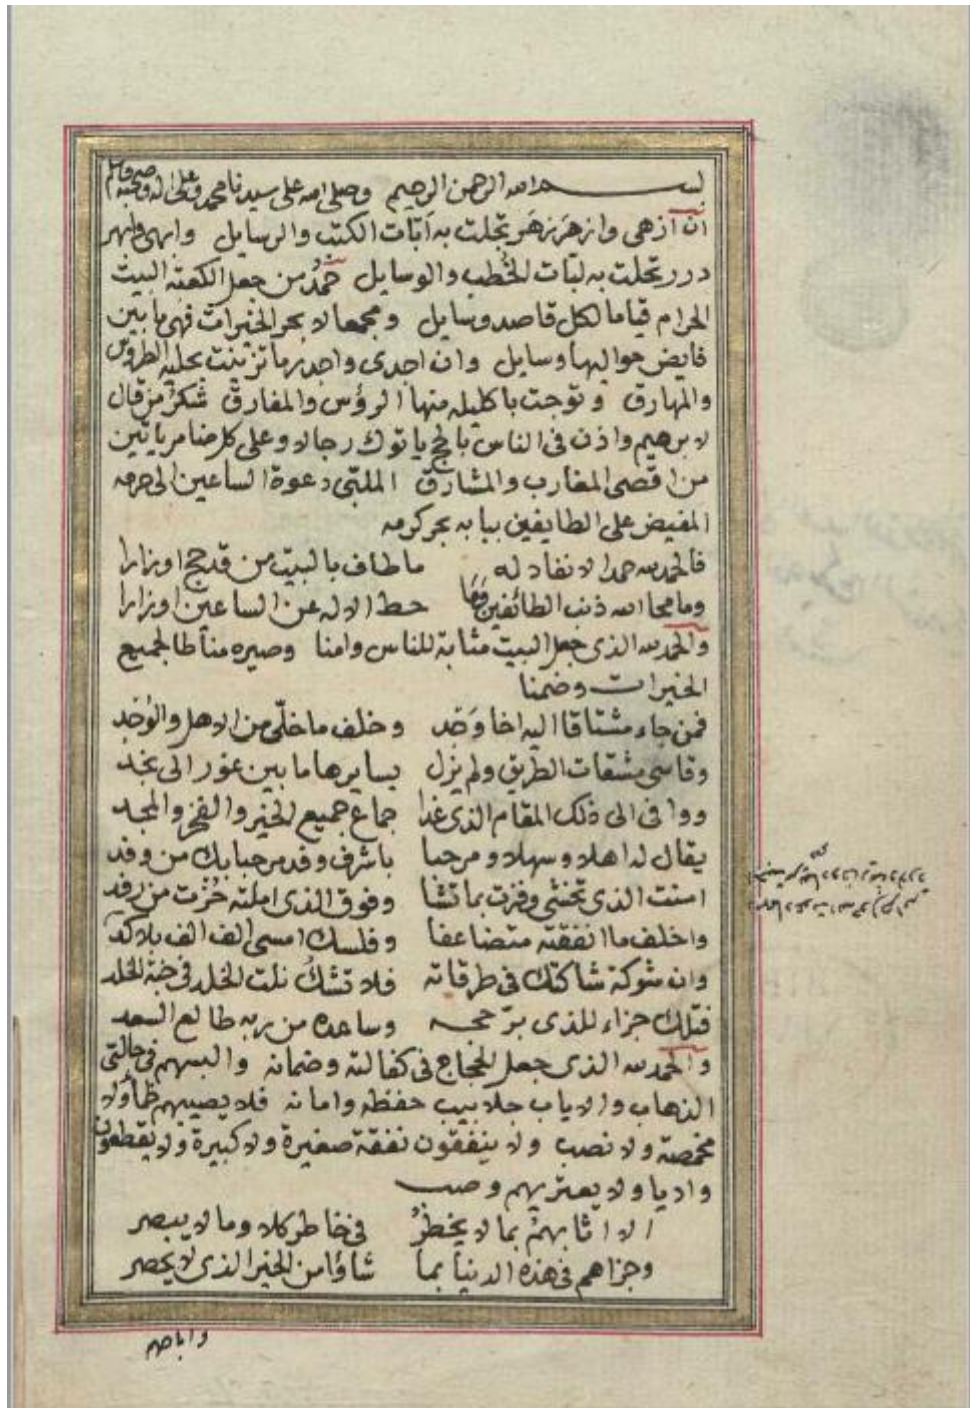 بسم الله الرحمن الرحيم وصلى الله على سيدنا محمد وعلى اله وصحبه وسلم
ان ازهى وازهر زهر تجلت به آيات الكتب والرسايل وابهى وابهر
درر تحلت به لبات الخطب والوسايل حمد من جعل الكعبة البيت
الحرام قياما لكل قاصد وسايل ومجمعا لابحر الخيرات فهي ما بين
فايض حواليها وسايل وان احرى واجدر ما تزينت بحليه الطروس
والمهارق وتوجت باكليله منها الرؤس والمفارق شكر من قال
لابرهيم واذن فى الناس بالحج ياتوك رجالا وعلى كل ضامر ياتين
من اقصى المغارب والمشارق الملبى دعوة الساعين الى حرمه
المفيض على الطايفين ببابه بحر كرمه
فالحمد لله حمدا لا نفاد له ما طاف بالبيت من قد حج او زارا
وما محا الله ذنب الطائفين وما حط الاله عن الساعين اوزارا
والحمد لله الذى جعل البيت مثابة للناس وامنا وصيره مناطا لجميع
الخيرات وضمنا
فمن جاء مشتاقا اليه اخا وَخد وخلف ما خلّى من الاهل والوُخد
وقاسى مشقات الطريق ولم يزل يسايرها ما بين غور الى نجد
ووافى الى ذلك المقام الذى غدا جماع جميع الخير والفخر والمجد
يقال له اهلا وسهلا ومرحبا باشرف وفد مرحبا بك من وفد
امنت الذى تخشى وفزت بما تشا وفوق الذى املته حُزت من رفد
واخلف ما انفقته متضاعفا وفلسك امسى الف الف بلا كد
وان شوكة شاكتك فى طرقاته فلا تشكُ نلت الخلد فى جنة الخلد
فتلك جزاء للذى برّ حجه وساعده من ربه طالع السعد
والحمد لله الذى جعل الحجاج فى كفالته وضمانه والبسهم فى حالتى
الذهاب والاياب جلابيب حفظه وامانه فلا يصيبهم ظمأ ولا
مخمصة ولا نصب ولا ينفقون نفقة صغيرة ولا كبيرة ولا يقطعون
واديا ولا يعتريهم وصب
الا اثابهمُ بما لا يخطرُ فى خاطر كلا وما لا يبصر
وجزاهم فى هذه الدنيا بما شاؤا من الخير الذى لا يحصر
واباحهم